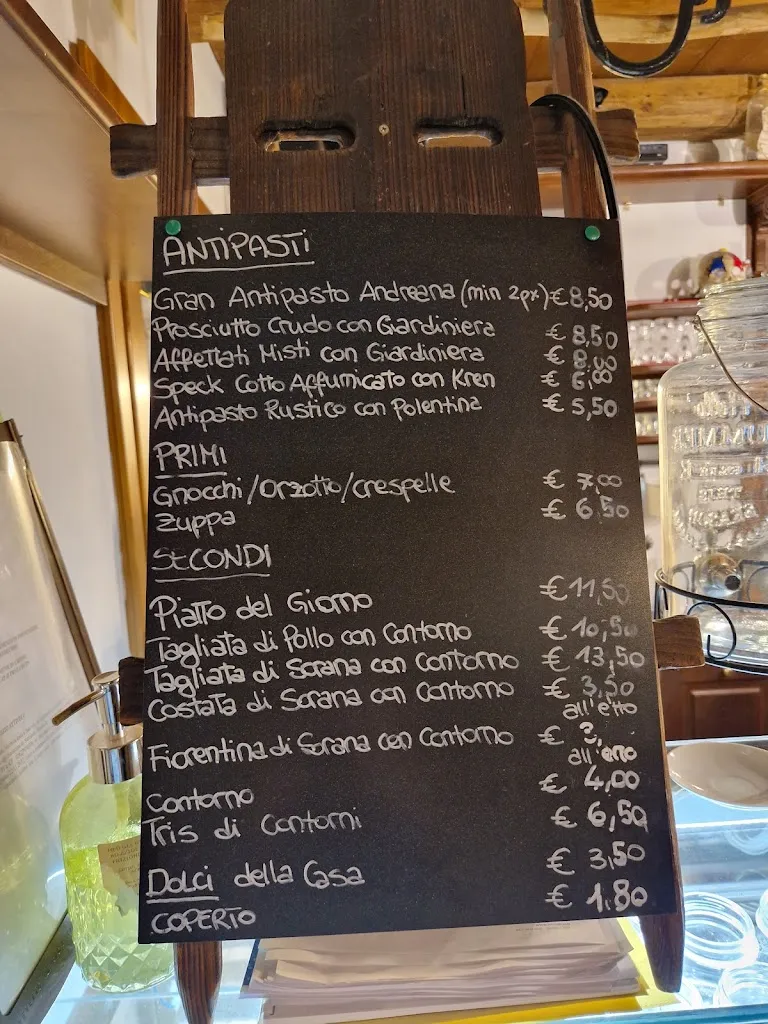 ANTIPASTI
Gran Antipasto Andreana (min 2px) € 8,50
Prosciutto Crudo con Giardiniera € 8,50
Affettati Misti con Giardiniera € 8,00
Speck Cotto Affumicato con Kren € 6,00
Antipasto Rustico con Polentina € 5,50
PRIMI
Gnocchi/Orzotto/crespelle € 7,00
Zuppa € 6,50
SECONDI
Piatto del Giorno € 11,50
Tagliata di Pollo con Contorno € 10,50
Tagliata di Sorana con Contorno € 13,50
Costata di Sorana con Contorno € 3,50
all'etto
Fiorentina di Sorana con Contorno €
all'etto
Contorno € 4,00
Tris di Contorni € 6,50
Dolci della Casa € 3,50
COPERTO € 1,80